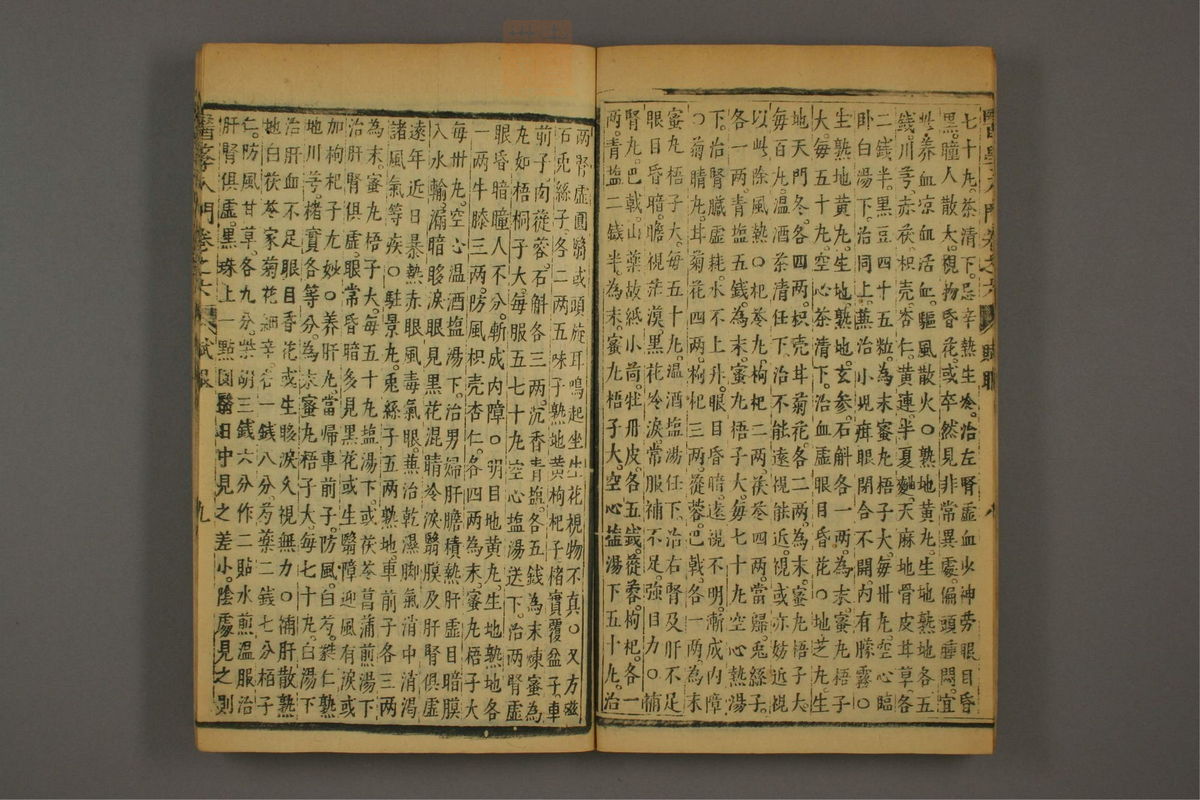 醫學入門卷之六 賦眼 八
七十丸茶清下忌辛熱生冷治左腎虛血少神勞眼目昏
黑瞳人散大視物昏花或卒然見非常異處偏頭腫悶宜
此養血凉血活血驅風散火○熟地黃丸生地熟地各五
錢川芎赤茯枳壳杏仁黃連半夏麯天麻地骨皮甘草各
二錢半黑豆四十五粒為末蜜丸梧子大每卅丸空心臨
卧白湯下治同上蕪治小兒疳眼閉合不開內有朦霧○
生熟地黃丸生地熟地玄參石斛各一两為末蜜丸梧子
大每五十丸空心茶清下治血虛眼目昏花○地芝丸生
地天門冬各四两枳壳甘菊花各二两為末蜜丸梧子大
每百丸溫酒茶清任下治不能遠視能近視或亦妨近視
以此除風熱○杞苓丸枸杞二两茯苓四两當歸兎絲子
各一两青塩五錢為末蜜丸梧子大每七十丸空心熱湯
下治腎臟虛耗水不上升眼目昏暗遠視不明漸成內障
○菊睛丸甘菊花四两枸杞三两蓯蓉巴戟各一两為末
蜜丸梧子大每五十丸溫酒塩湯任下治右腎及肝不足
眼目昏暗瞻視茫漠黑花冷淚常服補不足強目力○補
腎丸巴戟山藥故紙小茴牡丹皮各五錢蓯蓉枸杞各一
两青塩二錢半為末蜜丸梧子大空心塩湯下五十丸治
两腎虛圓翳或頭旋耳鳴起坐生花視物不真○又方磁
石兎絲子各二两五味子熟地黃枸杞子楮實覆盆子車
前子肉蓯蓉石斛各三两沉香青塩各五錢為末煉蜜為
丸如梧桐子大每服五七十丸空心塩湯送下治两腎虛
眼昏暗瞳人不分漸成內障○明目地黃丸生地熟地各
一两牛膝三两防風枳壳杏仁各四两為末蜜丸梧子大
每卅丸空心溫酒塩湯下治男婦肝膽積熱肝虛目暗膜
入水輪漏暗眵淚眼見黑花混睛冷淚翳膜及肝腎俱虛
遠年近日暴熱赤眼風毒氣眼蕪治乾濕脚氣消中消渴
諸風氣等疾○駐景丸兎絲子五两熟地車前子各三两
為末蜜丸梧子大每五十丸塩湯下或茯苓菖蒲煎湯下
治肝腎俱虛眼常昏暗多見黑花或生翳障迎風有淚或
加枸杞子尤妙○養肝丸當歸車前子防風白芍蕤仁熟
地川芎楮實各等分為末蜜丸梧子大每七十丸白湯下
治肝血不足眼目昏花或生眵淚久視無力○補肝散熟
地白茯苓家菊花細辛各一錢八分芍藥二錢七分栢子
仁防風甘草各九分柴胡三錢六分作二貼水煎溫服治
肝腎俱虛黑珠上一點圓翳日中見之差小陰處見之則
醫學入門卷之六 賦眼 九